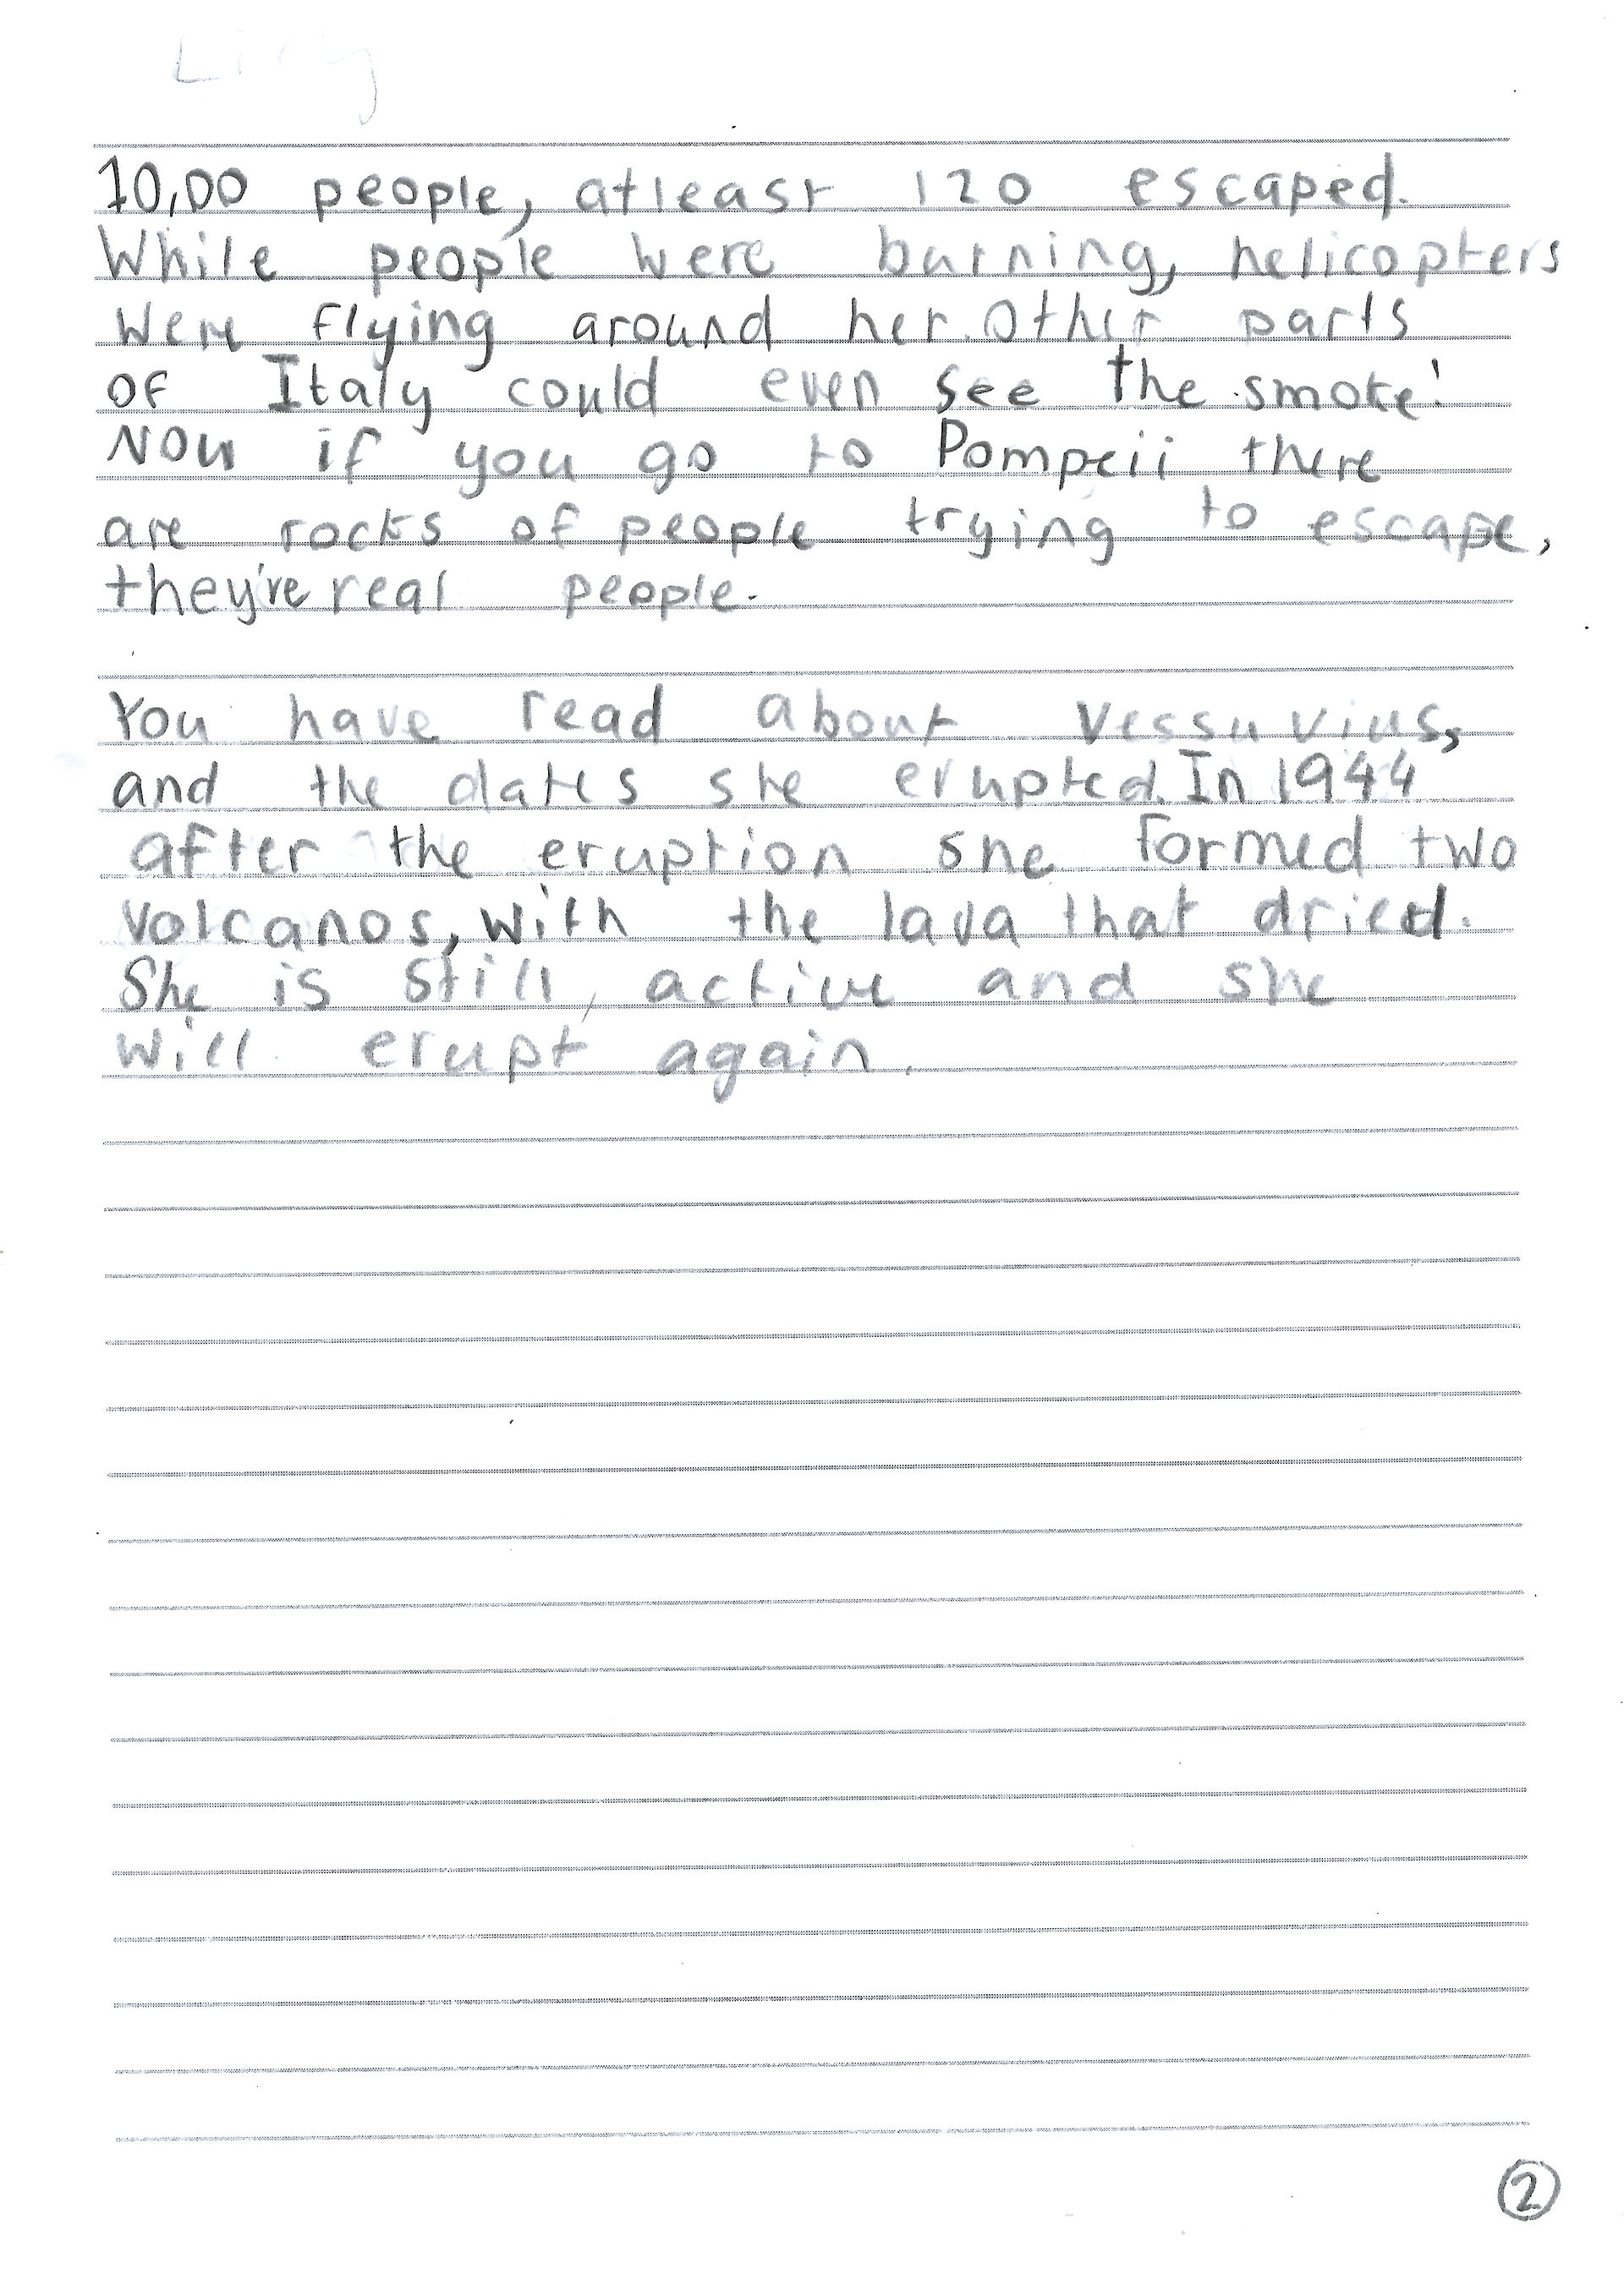 Lilly
10,00 people, atleast 120 escaped.
While people were burning, helicopters
were flying around her. Other parts
of Italy could even see the smoke!
Now if you go to Pompeii there
are rocks of people trying to escape,
they're real people.
You have read about Vessuvius,
and the dates she erupted. In 1944
after the eruption she formed two
volcanos, with the lava that dried.
She is still active and she
will erupt again.
2